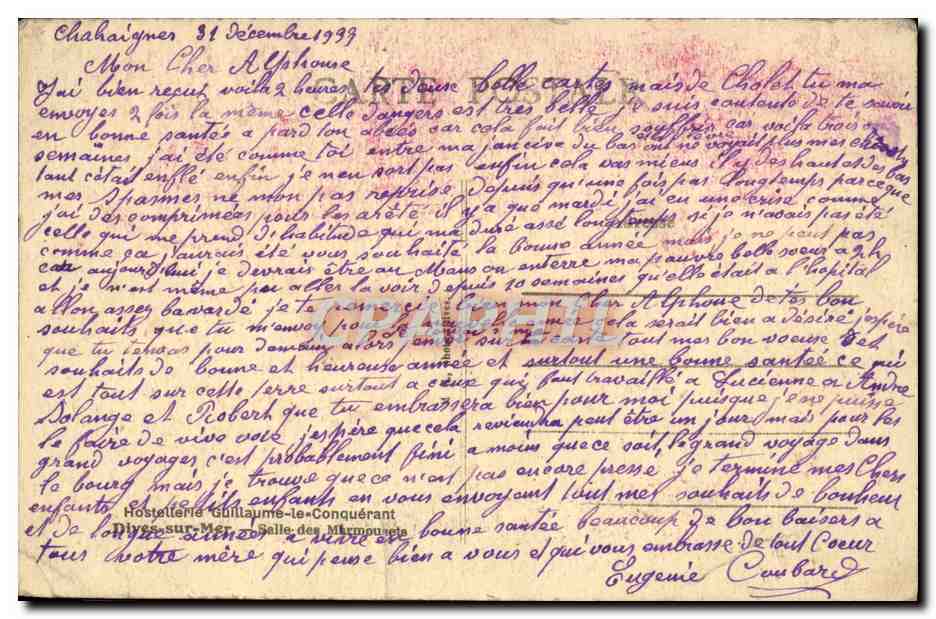 Chahaignes 31 décembre 1939
Mon Cher Alphonse
CARTE POSTALE
J'ai bien reçut voila 2 heures tes deuse belle cartes mais de Cholet tu ma
envoyes 2 fois la même celle d'angers est très belle je suis contente de te savoir
en bonne santés a pard ton abcès car cela fait bien souffrir car voila trois
semaines j'ai été comme toi entre ma jancive du bas on ne voyait plus mes
tant c'était enflé enfin je neu sort pas enfin cela vas mieux il y des haut et des bas
mes Spasmes ne mon pas reprise depuis qu'une fois pas longtemps parceque
j'ai des comprimées pour les arété il y a que mardi j'ai eu une crise comme
celle qui me prend d'habitude qui ma duré assé longtemps si je n'avais pas été
comme ça j'aurais été vous souhaité la bonne année mais je ne peut pas
car aujourd'hui je devrais être au Mans on enterre ma pauvre belle soeur a 2 h
et je n'est même pu aller la voir depuis 10 semaines qu'elle était a l'hopital
allon assez bavardé je te remercie bien mon cher Alphonse de tes bon
souhaits que tu m'envoy pour cela serait bien a désiré j'espère
que tu tervas pour demain alors tout mes bon voeuse et
souhaits de bonne et heureuse année et surtout une bonne santée ce qui
est tout sur cette terre surtout a ceux qui faut travaillé a Lucienne a André
Solange et Robert que tu embrassera bien pour moi puisque je ne puisse
le faire de vive voie j'espère que cela reviendra peut être un jour mais pour les
grand voyages c'est probablement fini a moins que ce soit le grand voyage dans
le bourg mais je trouve que ce n'ent pas encore pressé je termine mes Chers
enfants et petits enfants en vous envoyant tout mes souhaits de bonheur
Hostellerie Guillaume-le-Conquérant
et de longue années a vivre en bonne santée beaucoup de bon baisers a
Dives-sur-Mer. — Salle des Marmousets
tous votre mère qui pense bien a vous et qui vous embrasse de tout Coeur
Eugenie Coubard
CPAPHIL